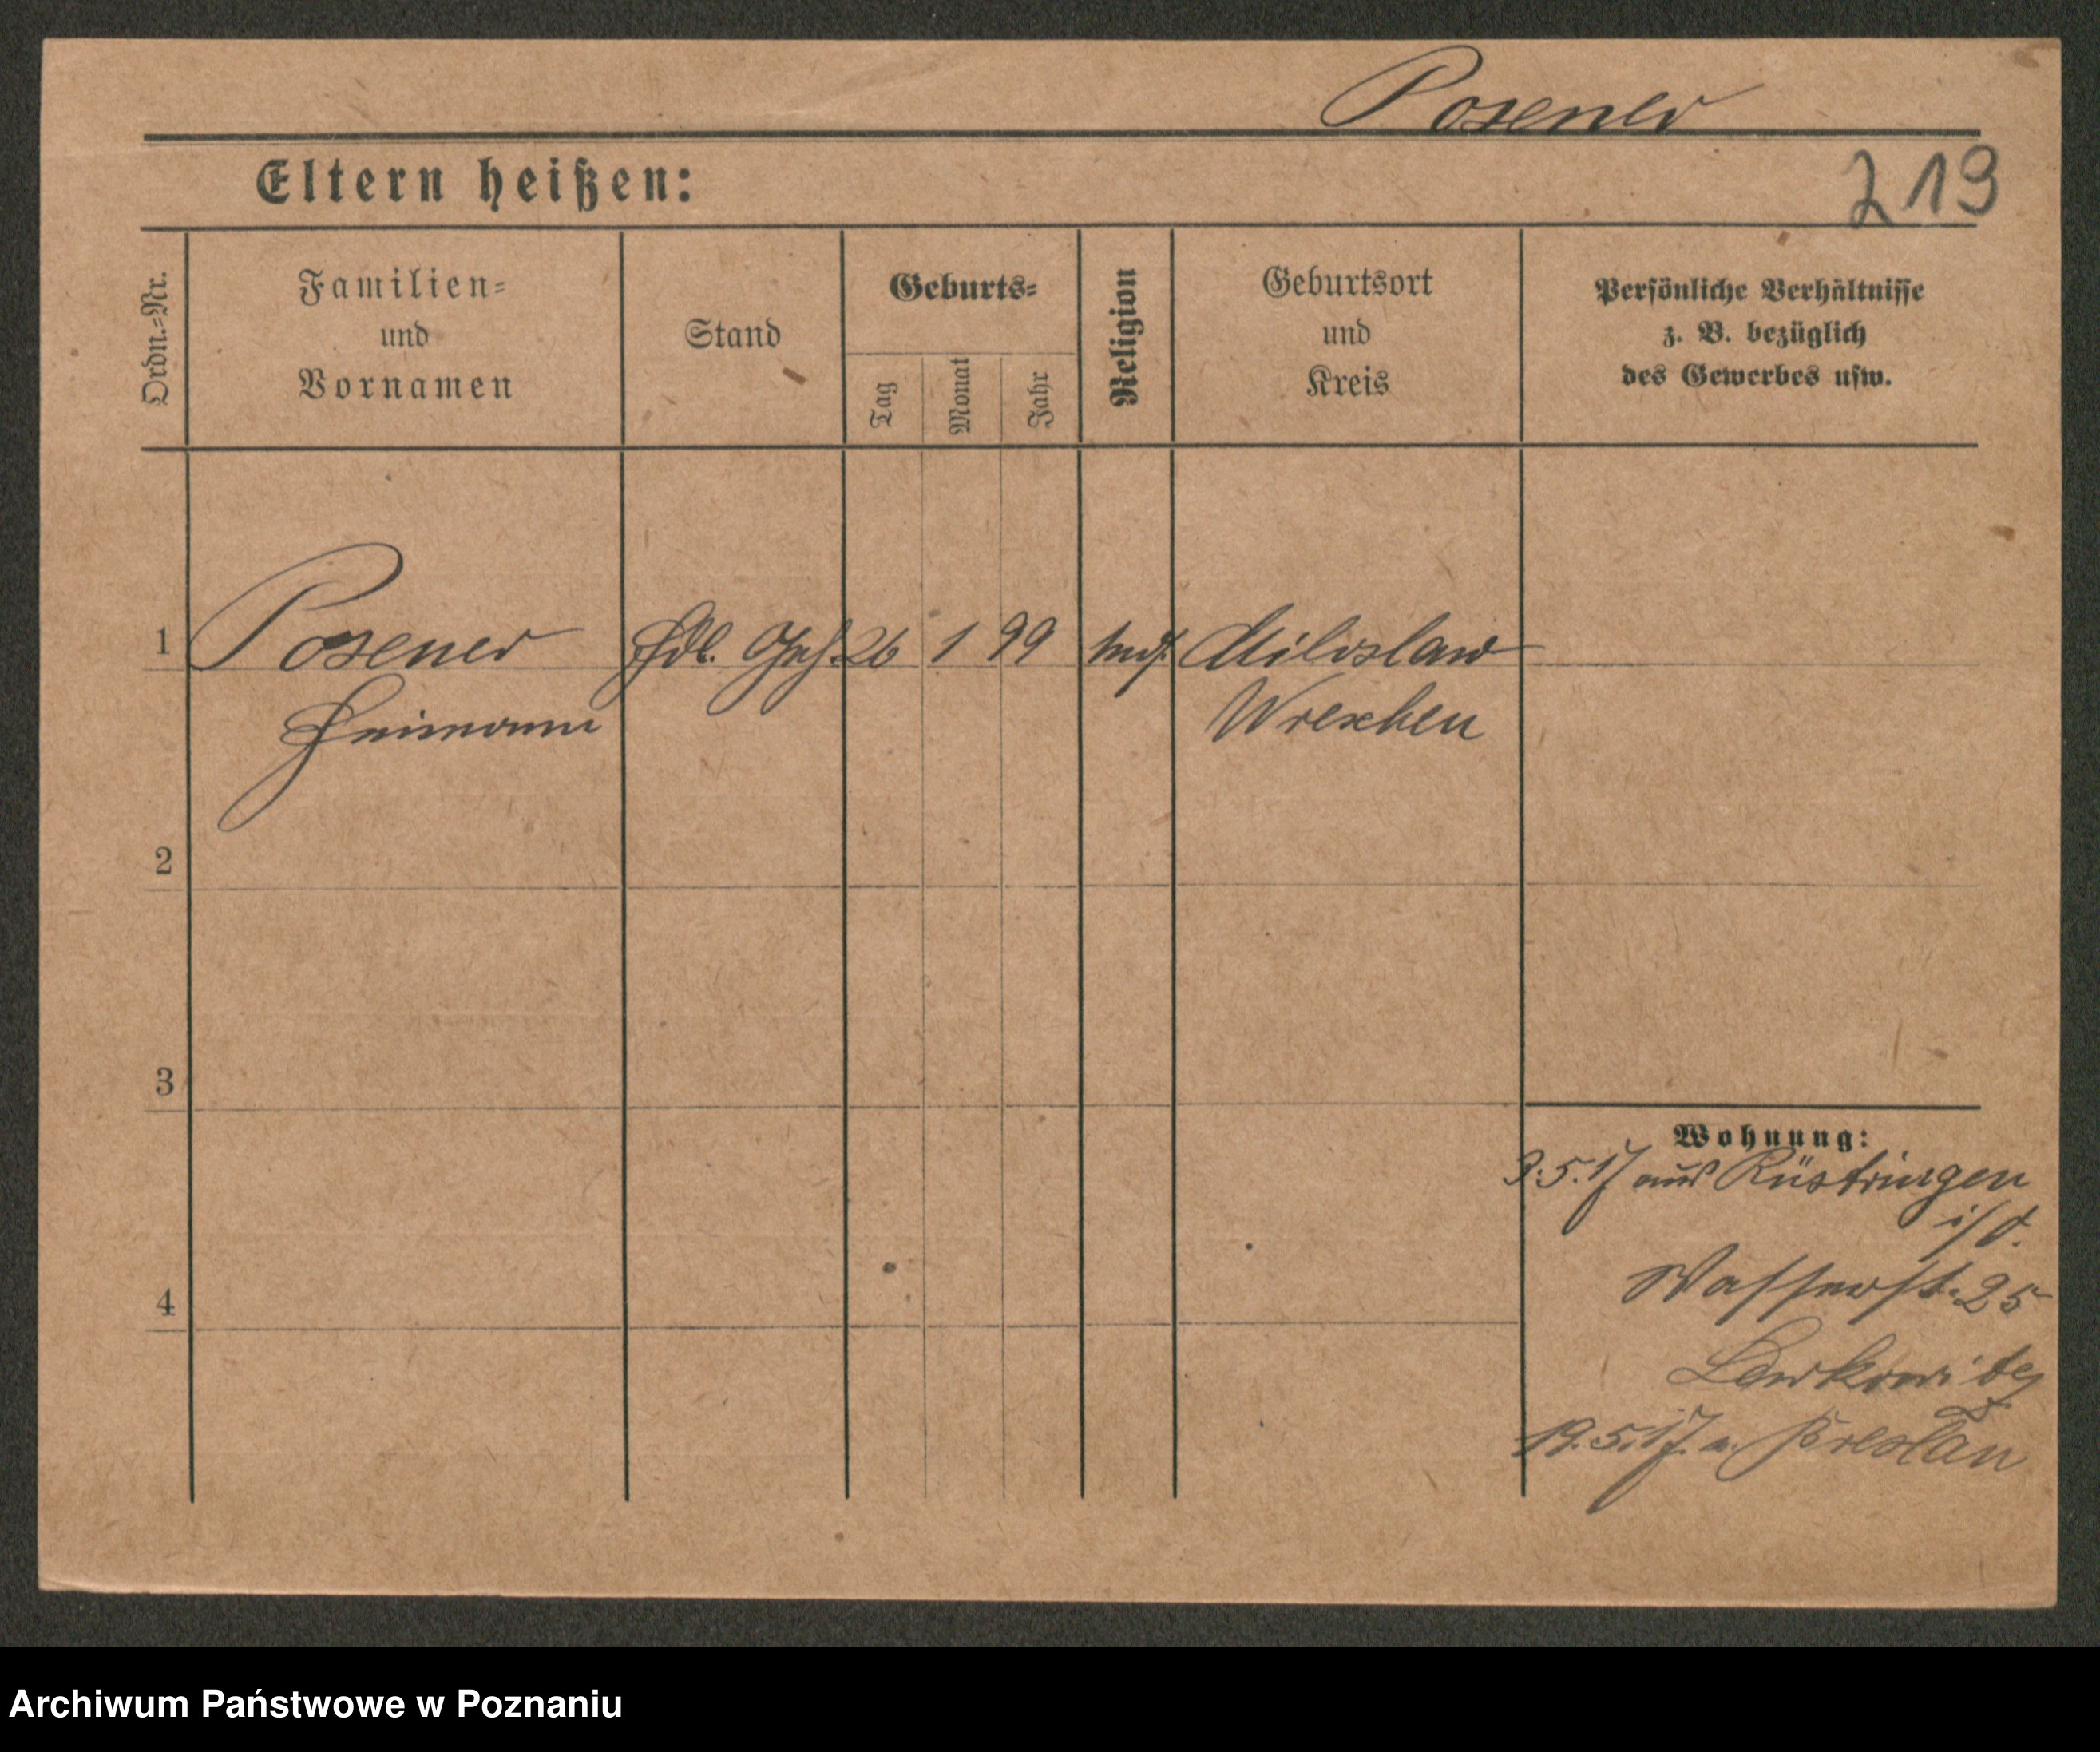 Posener
Eltern heißen:
219
Ordn.-Nr.
Familien-
und
Vornamen
Stand
Geburts-
Tag
Monat
Jahr
Religion
Geburtsort
und
Kreis
Persönliche Verhältnisse
z. B. bezüglich
des Gewerbes usw.
1 Posener Hdl. Geh. 26 1 99 mos. Miloslaw
Heimann Wreschen
2
3
4
Wohnung:
3.5.17 aus Rüstringen
i/O.
Wasserst. 25
Lewkowitz
19.5.17. n. Breslau
Archiwum Państwowe w Poznaniu